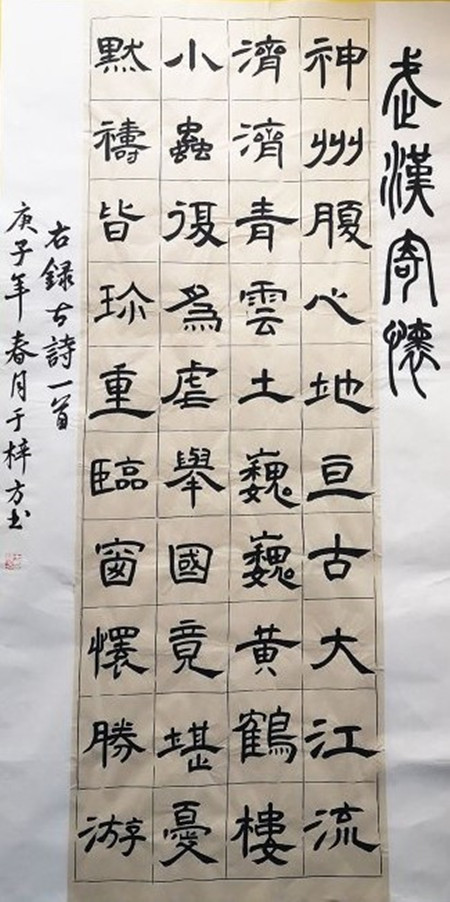 武漢寄懷
神州腹心地亘古大江流
濟濟青雲士巍巍黃鶴樓
小蟲復爲虐舉國竟堪憂
默禱皆珎重臨窗懷勝游
右録古詩一首
庚子年春月于梓方书